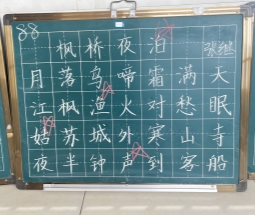 88
枫桥夜泊 张继
月落乌啼霜满天
江枫渔火对愁眠
姑苏城外寒山寺
夜半钟声到客船